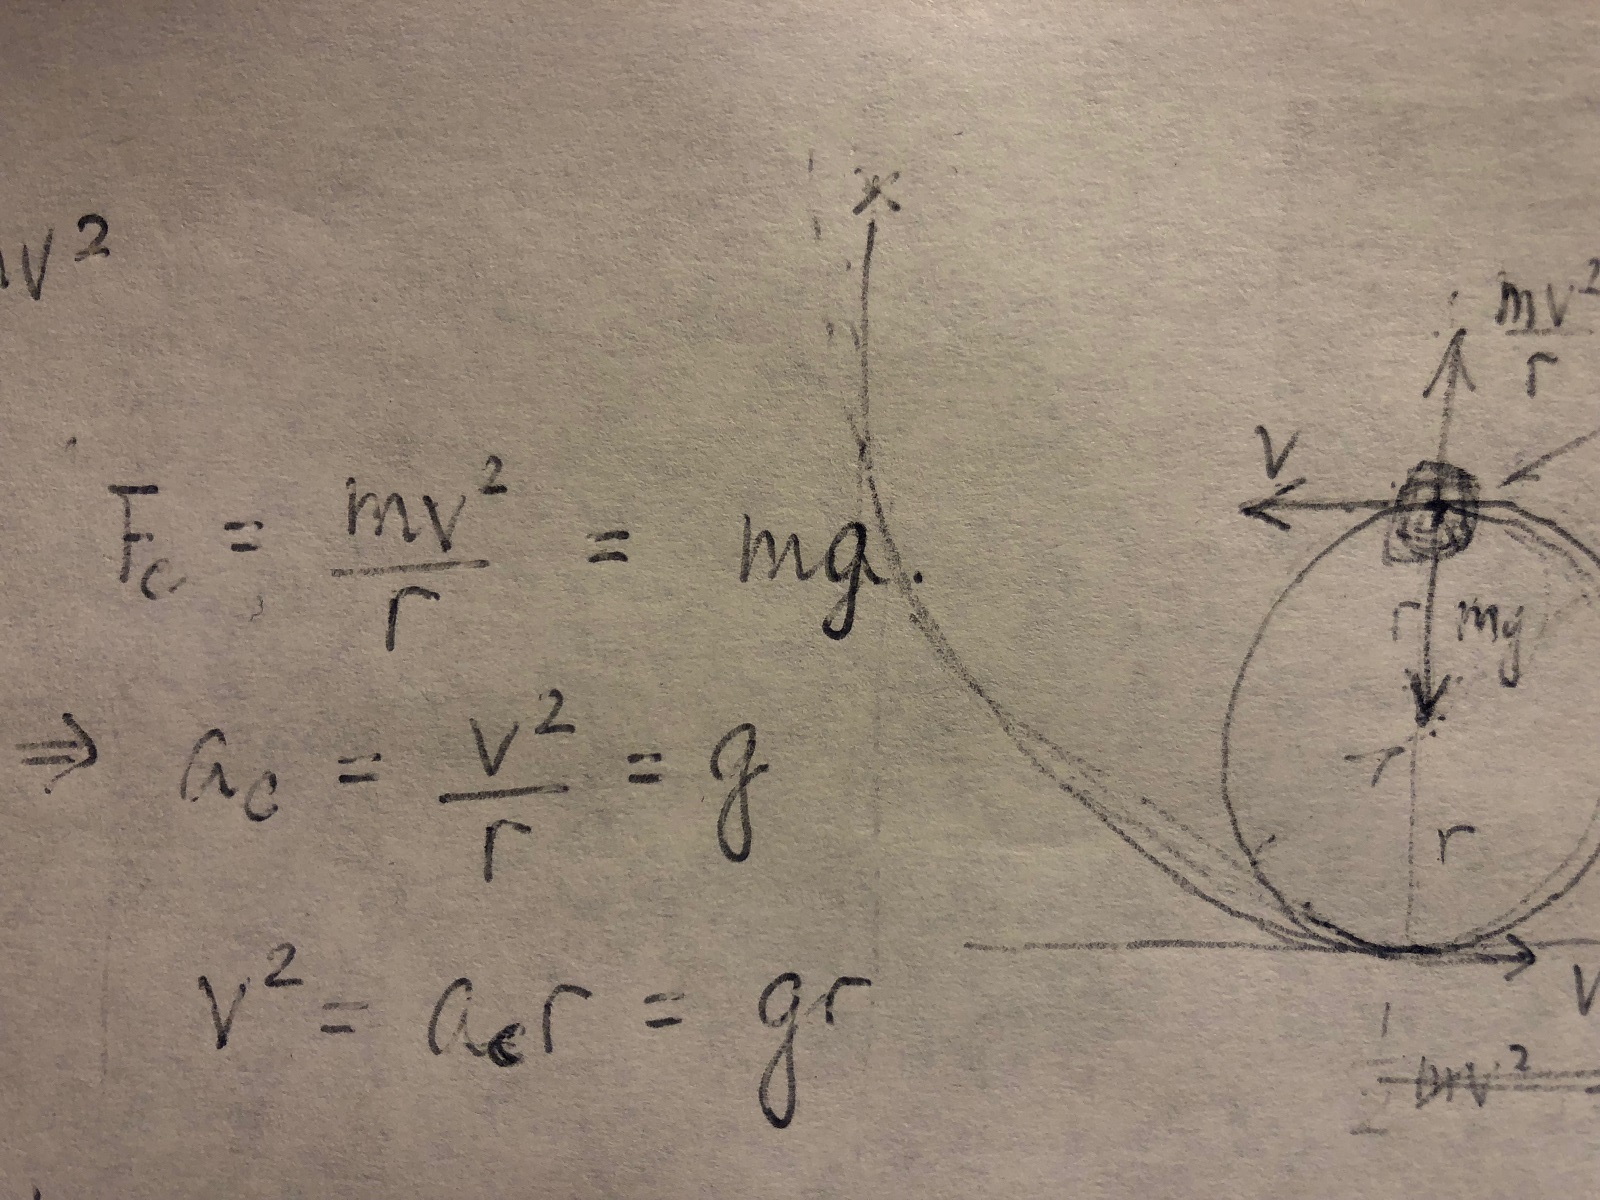 v²
F_c = mv²/r = mg.
⇒ a_c = v²/r = g
v² = a_c r = gr
x
mv²/r
v
r mg
r
r
v
1/2 mv²